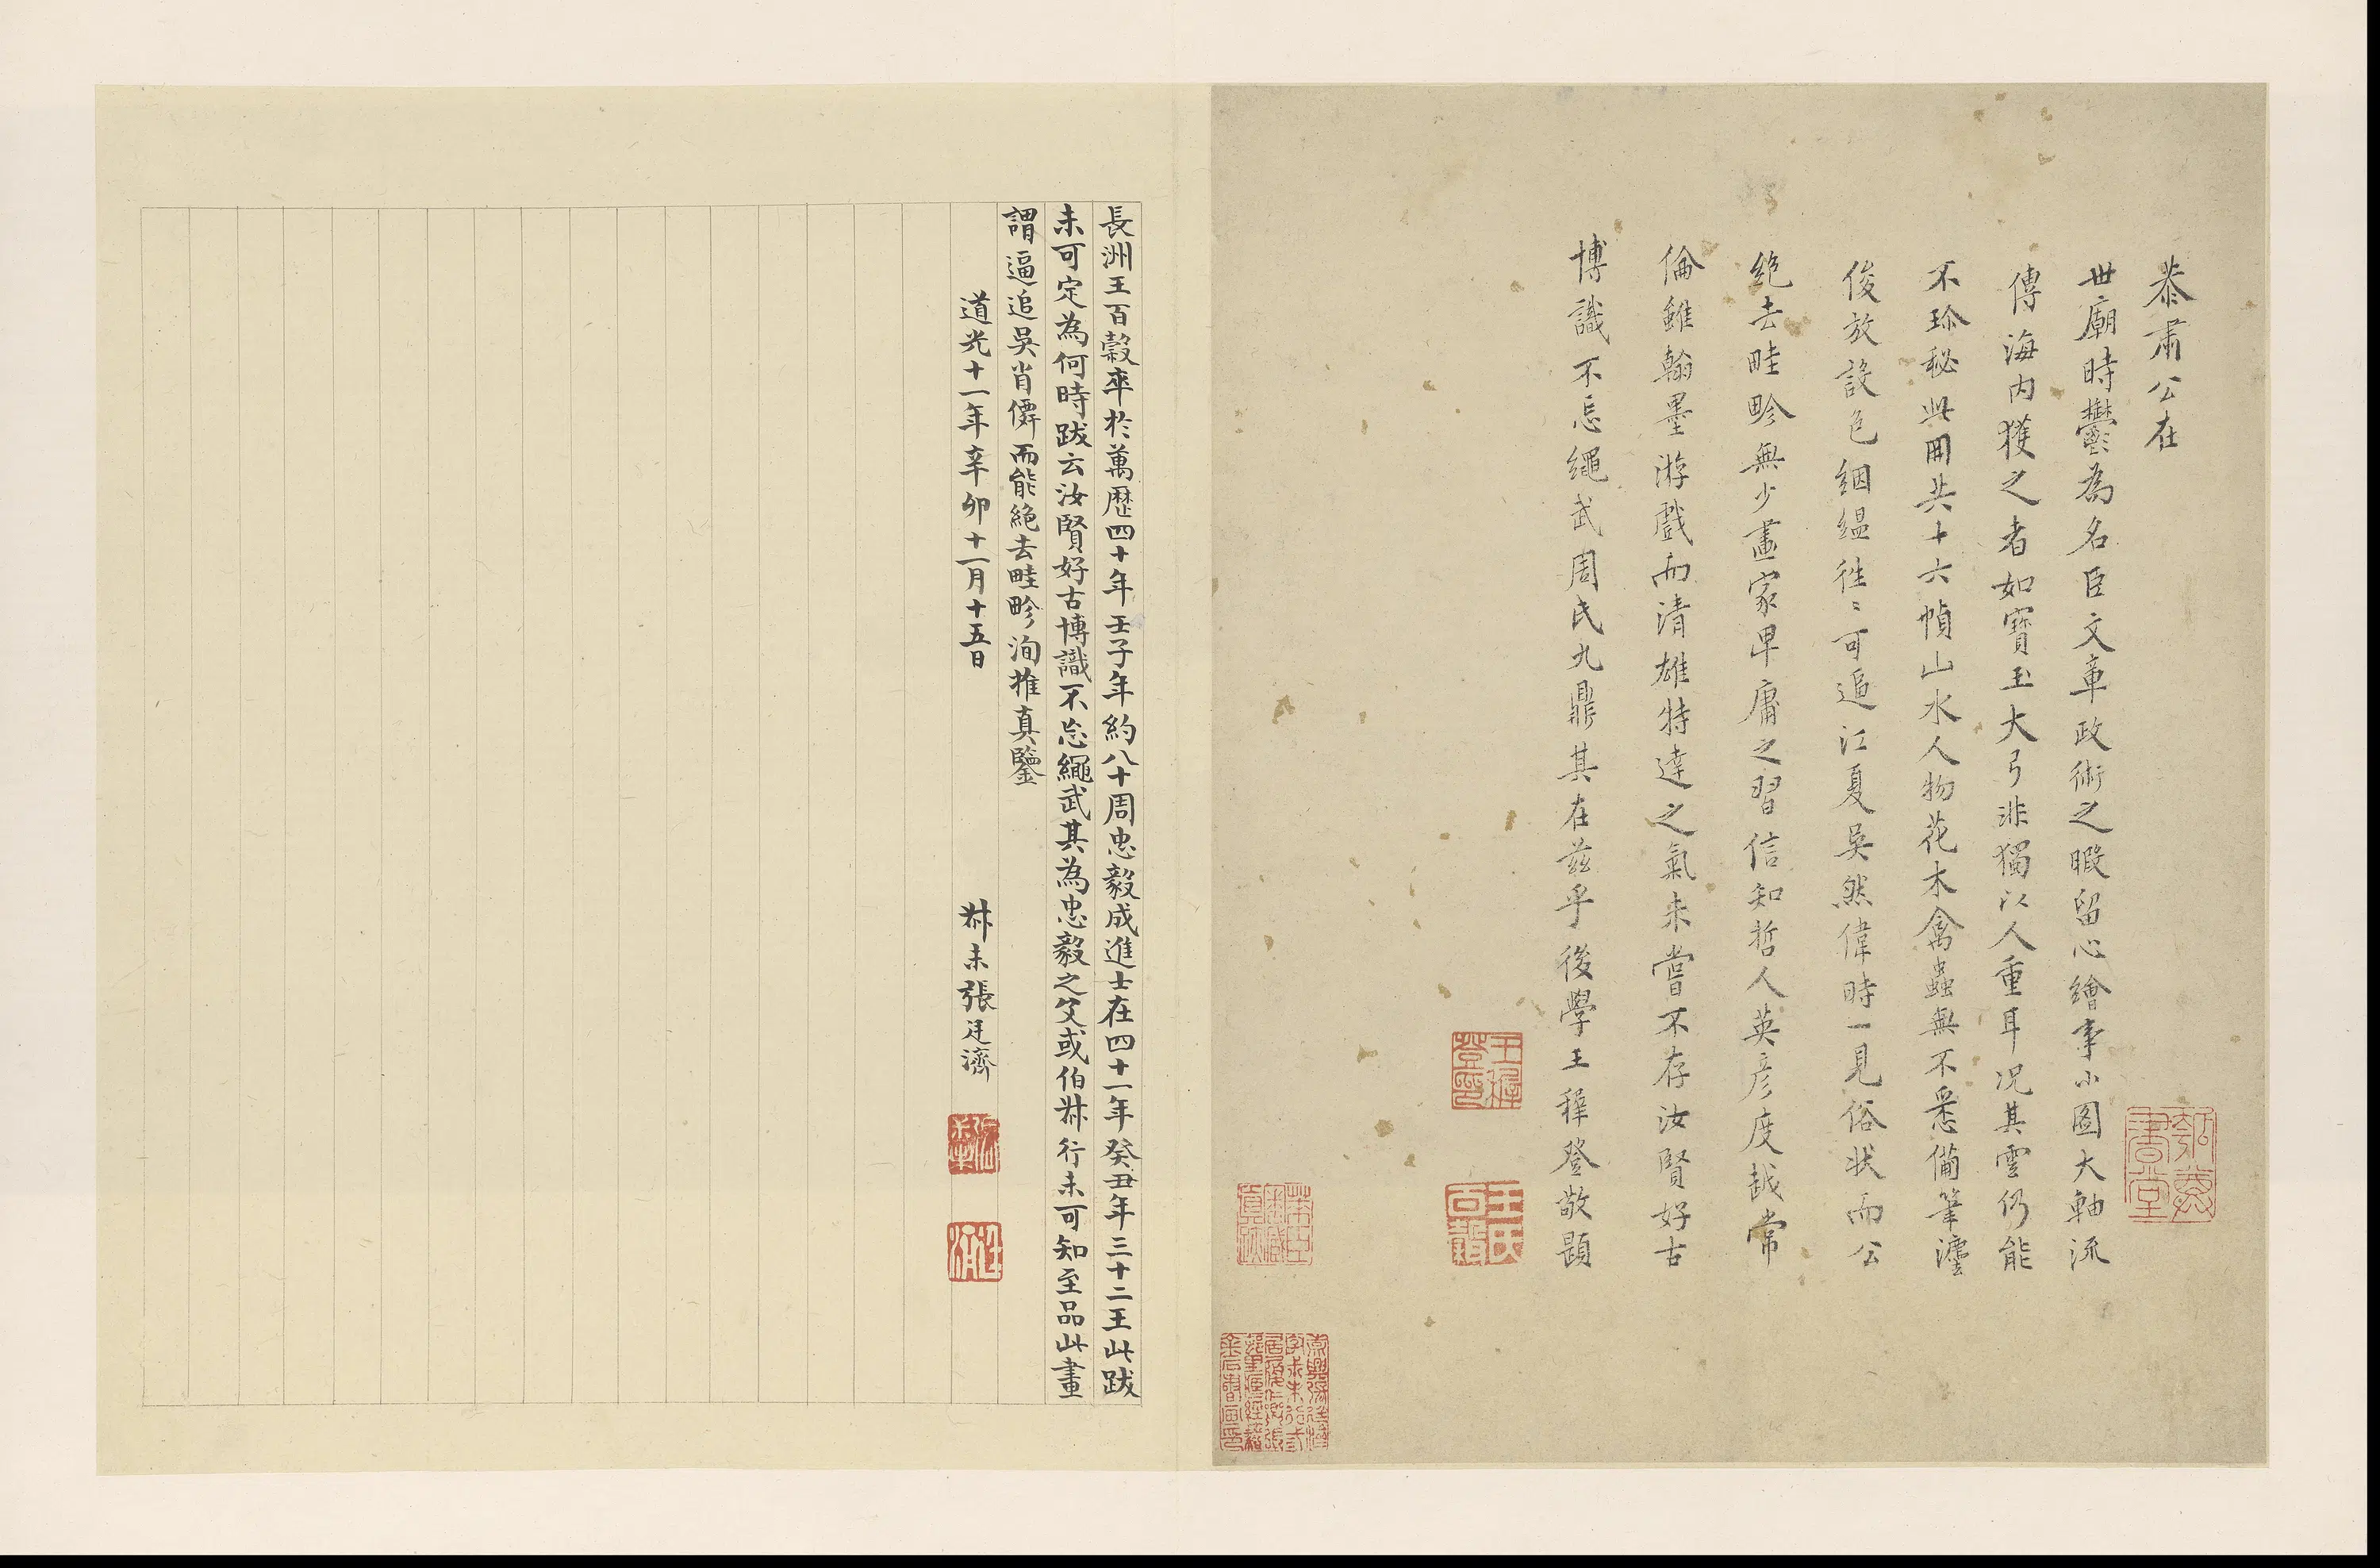 恭肅公在
世廟時鬱為名臣文章政術之暇留心繪事小圖大軸流
傳海内獲之者如寶玉大弓非獨以人重耳况其雲仍能
不珎秘此冊共十六幀山水人物花木禽蟲無不悉備筆瀍
俊放設色絪緼往〻可逼江夏吳然偉時一見俗状而公
絶去畦畛無少畫家卑庸之習信知哲人英彦度越常
倫雖翰墨游戲而清雄特達之氣未嘗不存汝賢好古
博識不忘繩武周氏九鼎其在兹乎後學王穉登敬題
王穉登印
王氏百穀
長洲王百穀卒於萬歷四十年壬子年約八十周忠毅成進士在四十一年癸丑年三十二王此跋
未可定為何時跋云汝賢好古博識不忘繩武其為忠毅之父或伯叔行未可知至品此畫
謂逼追吳肖僊而能絶去畦畛洵推真鑒
道光十一年辛卯十一月十五日
叔未張廷濟
張叔未
廷濟